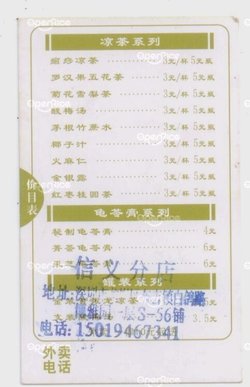 凉茶系列
癍痧凉茶 3元/杯 5元瓶
罗汉果五花茶 3元/杯 5元瓶
菊花雪梨茶 3元/杯 5元瓶
酸梅汤 3元/杯 5元瓶
茅根竹蔗水 3元/杯 5元瓶
椰子汁 3元/杯 5元瓶
火麻仁 3元/杯 5元瓶
金银露 3元/杯 5元瓶
红枣桂圆茶 3元/杯 5元瓶
价目表
龟苓膏系列
秘制龟苓膏 4元
茯苓龟苓膏 6元
6元
信义分店
罐装系列
地址:
S-56铺
3.5元
电话:15019467341
外卖
电话
OpenRice